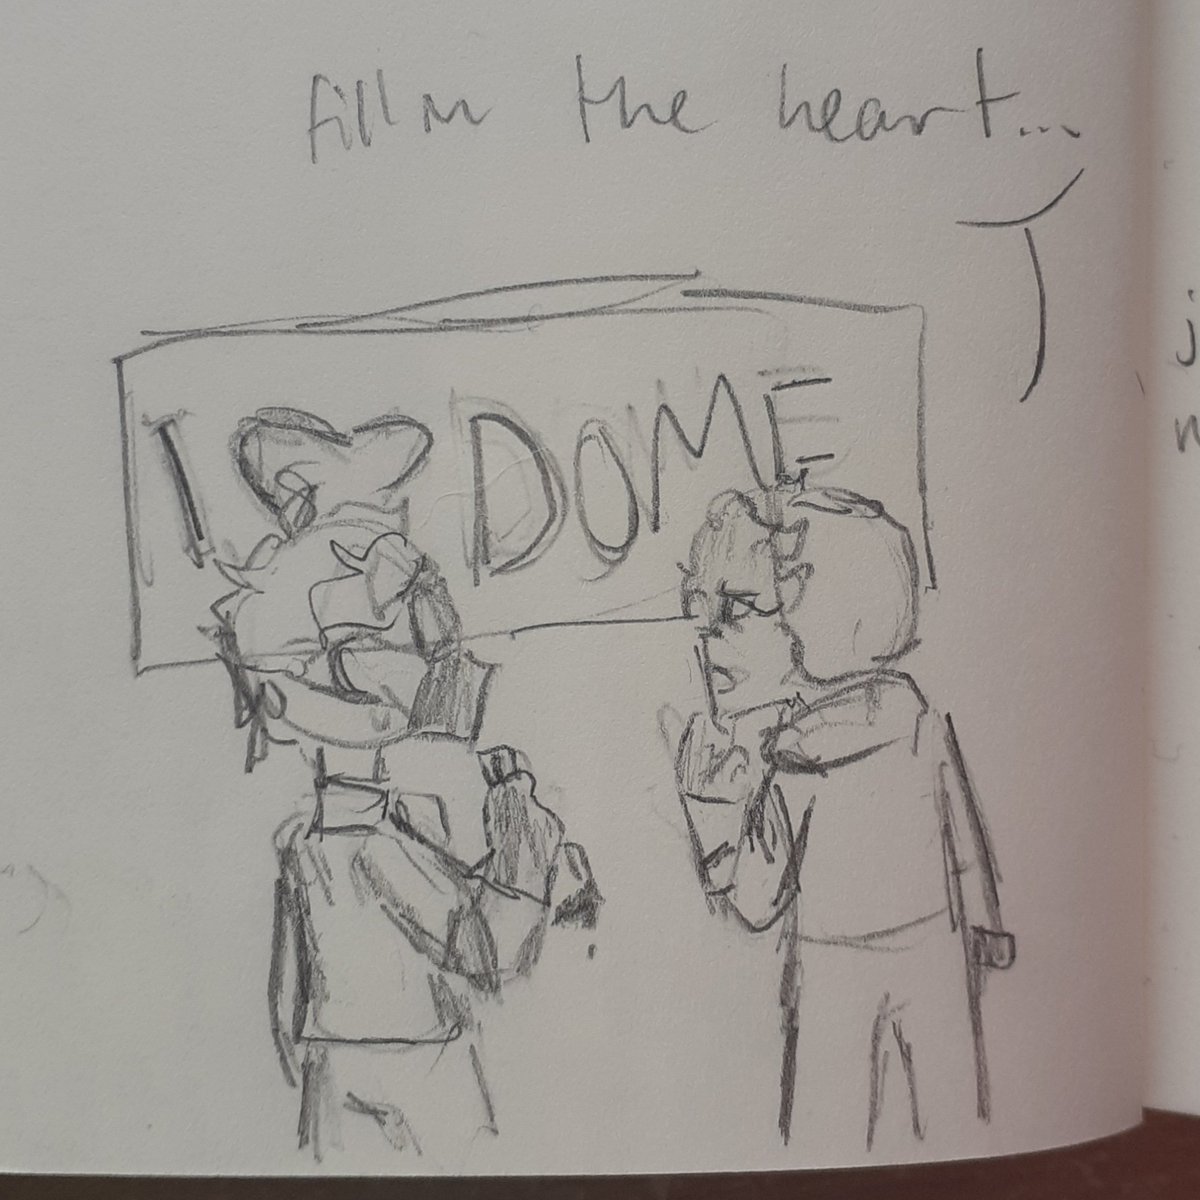 fill in the heart...
I ♥ DOME